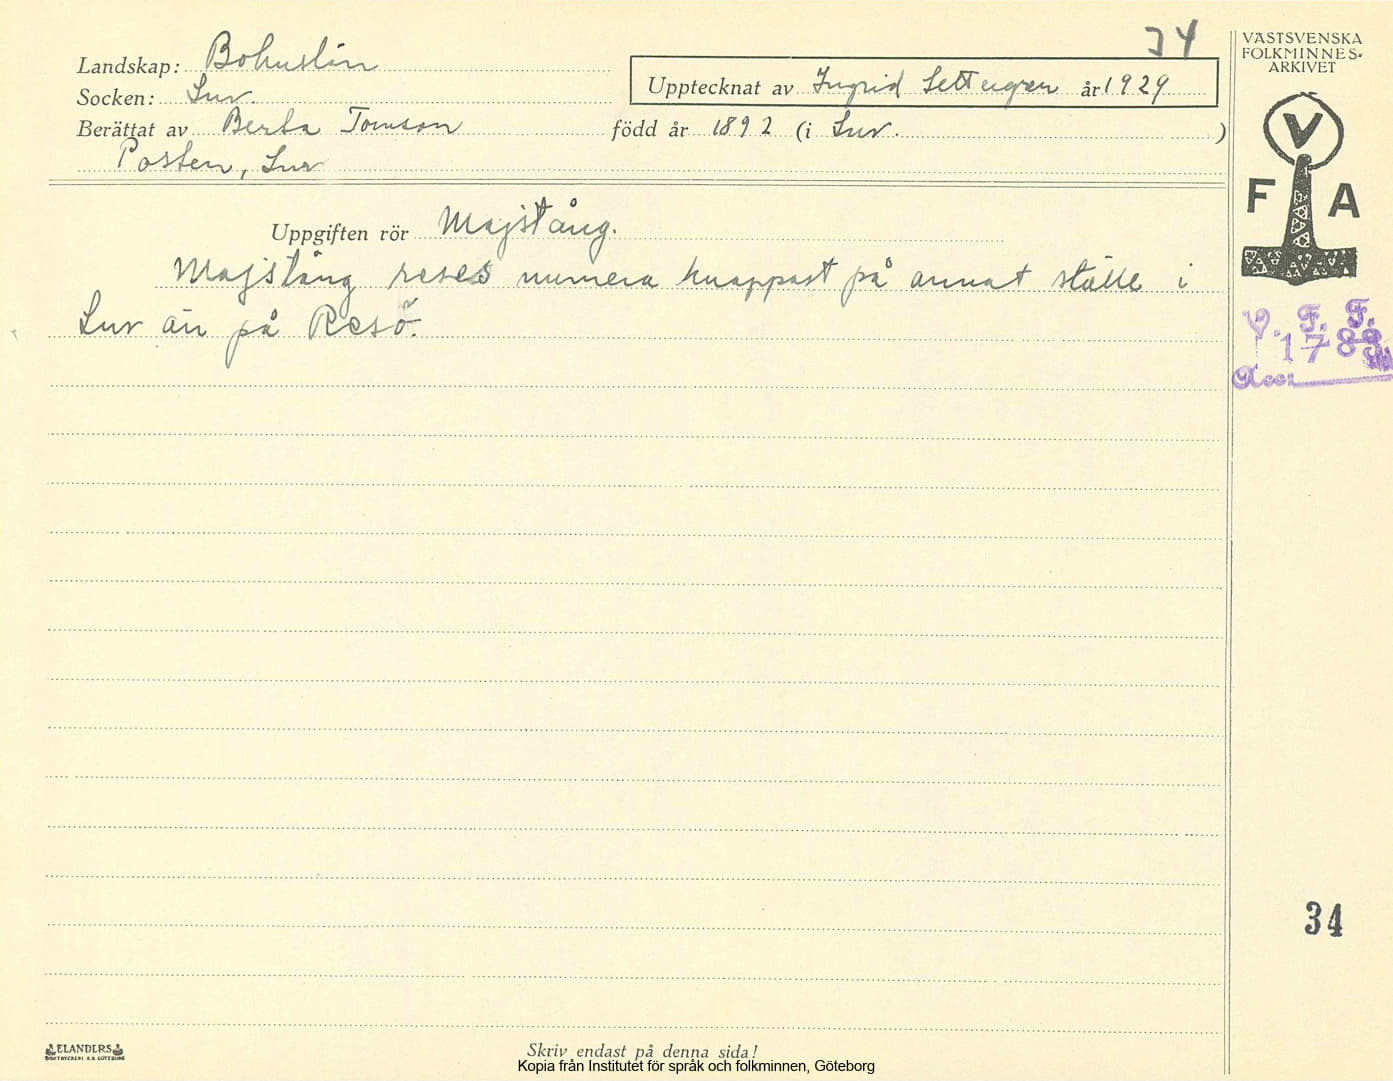 34
Landskap: Bohuslän
Socken: Lur.
Upptecknat av Ingrid Settergren år 1929
Berättat av Berta Tomson född år 1892 (i Lur. )
Posten, Lur
Uppgiften rör Majstång.
Majstång reses numera knappast på annat ställe i
Lur än på Resö.
VÄSTSVENSKA
FOLKMINNES-
ARKIVET
V
F A
V. F. F.
178
Acc:
34
ELANDERS
BOKTRYCKERI A.B. GÖTEBORG
Skriv endast på denna sida!
Kopia från Institutet för språk och folkminnen, Göteborg